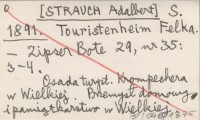 [STRAUCH Adalbert] S.
1891. Touristenheim Felka.
— Zipser Bote 29, nr 35:
3-4.
Osada turyst. Krompechera
w Wielkiej. Przemysł domowy
i pamiątkarstwo w Wielkiej.